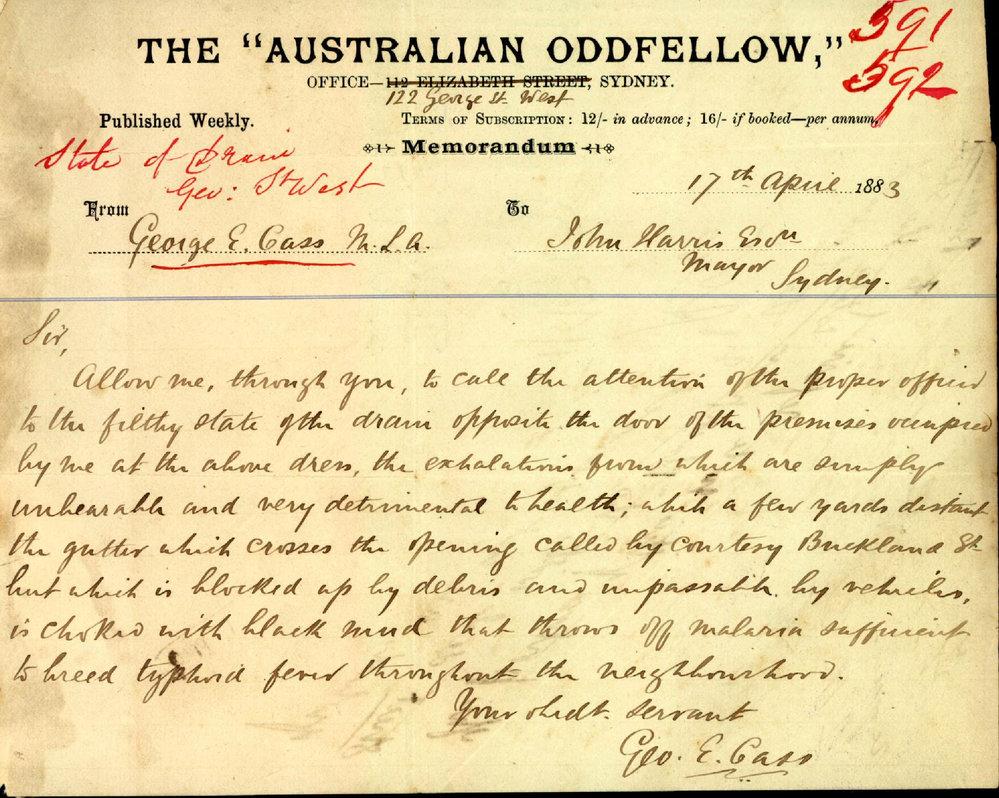 591
THE "AUSTRALIAN ODDFELLOW,"
592
OFFICE—112 ELIZABETH STREET, SYDNEY.
122 George St. West
Published Weekly.
TERMS OF SUBSCRIPTION: 12/- in advance; 16/- if booked—per annum.
State of Drain
Geo: St West
Memorandum
17th April 1883
From
To
George E. Cass M.L.A.
John Harris Esqre
Mayor
Sydney.
Sir,
Allow me, through you, to call the attention of the proper officer
to the filthy state of the drain opposite the door of the premises occupied
by me at the above dress, the exhalations from which are simply
unbearable and very detrimental to health; while a few yards distant
the gutter which crosses the opening called by courtesy Buckland St
but which is blocked up by debris and unpassable by vehicles,
is choked with black mud that throws off malaria sufficient
to breed typhoid fever throughout the neighbourhood.
Your obedt. servant
Geo. E. Cass